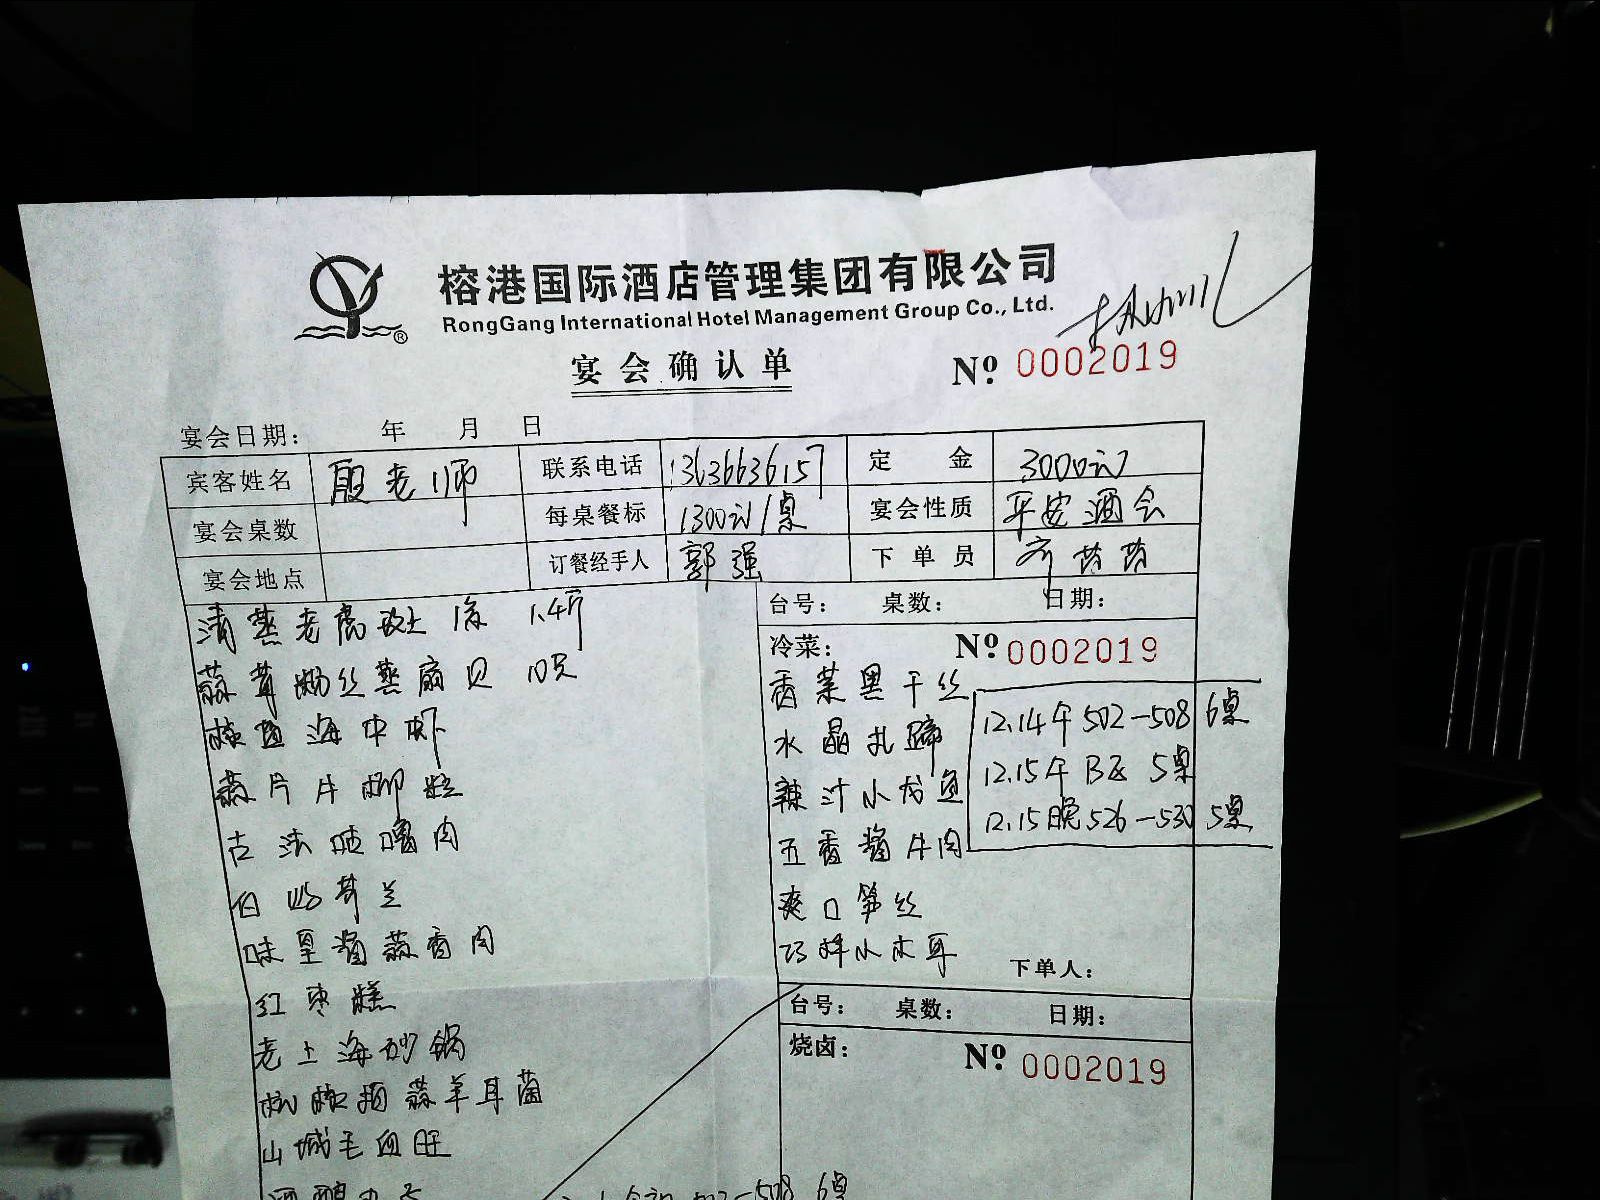 榕港国际酒店管理集团有限公司
RongGang International Hotel Management Group Co., Ltd.
宴会确认单
№ 0002019
宴会日期: 年 月 日
宾客姓名 殷老师 联系电话 13636636157 定金 3000元
宴会桌数 每桌餐标 1300元/桌 宴会性质 平安酒会
宴会地点 订餐经手人 郭强 下单员 齐苗苗
清蒸老虎斑1条 1.4斤
蒜茸粉丝蒸扇贝 10只
椒盐海中虾
蒜片牛柳粒
古法咕噜肉
白灼芥兰
味皇酱蒜香肉
红枣糕
老上海砂锅
蒜羊耳菌
山城毛血旺
台号: 桌数: 日期:
冷菜: № 0002019
香菜黑干丝
水晶扎蹄
辣汁小龙鱼
五香酱牛肉
爽口笋丝
巧拌小木耳
12.14午 502-508 6桌
12.15午 B区 5桌
12.15晚 526-530 5桌
下单人:
台号: 桌数: 日期:
烧卤: № 0002019
502-508 6桌